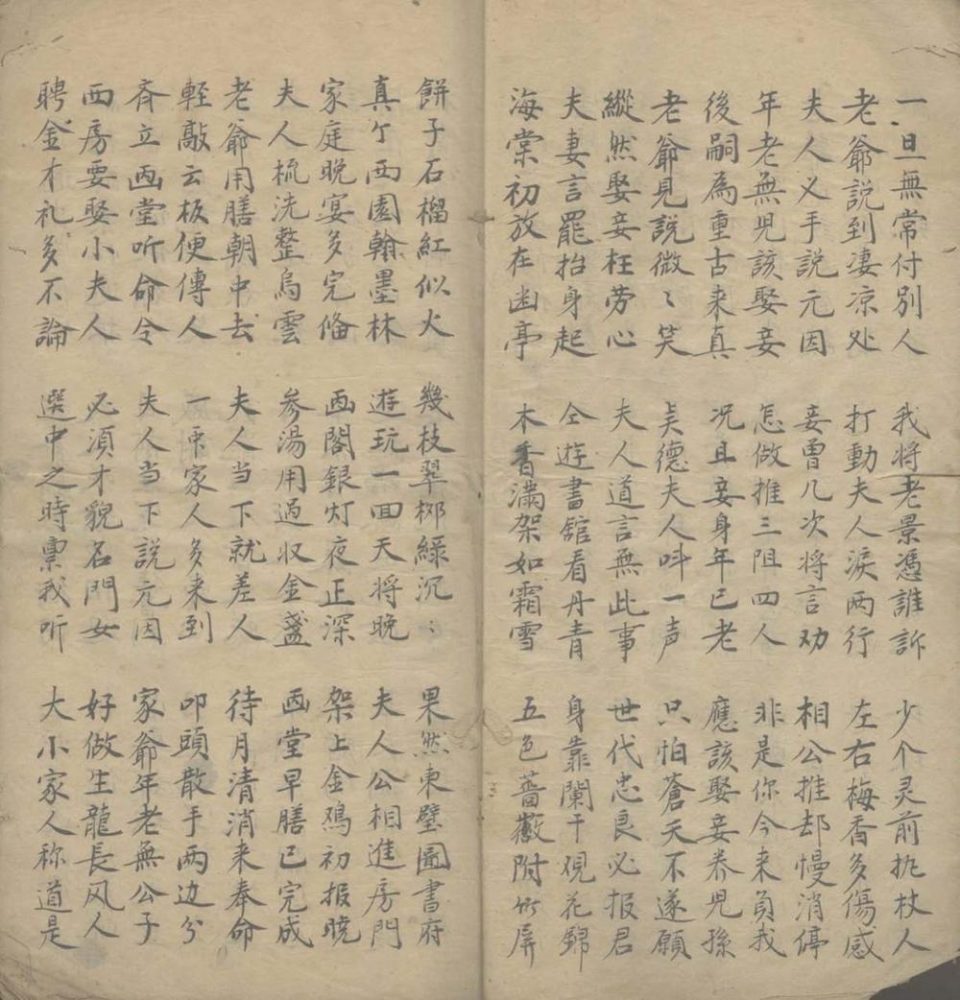 一旦無常付別人 我將老景憑誰訴 少个灵前执杖人
老爺説到凄凉处 打動夫人淚两行 左右梅香多傷感
夫人义手説元因 妾曽几次將言劝 相公推却慢消停
年老無児該娶妾 怎做推三阻四人 非是你今来負我
後嗣為重古来真 况且妾身年已老 應該娶妾养児孫
老爺見說微〻笑 吴德夫人呌一声 只怕蒼天不遂願
縱然娶妾枉劳心 夫人道言無此事 世代忠良必报君
夫妻言罷抬身起 仝遊書舘看丹青 身靠闌干观花歸
海棠初放在幽亭 木香满架如霜雪 五色薔薇附竹屏
餅子石榴紅似火 幾枝翠柳綠沉〻 果然東壁圖書府
真个西園翰墨林 遊玩一回天將晚 夫人公相進房門
家庭晚宴多完俻 西閣銀灯夜正深 架上金鸡初报曉
夫人梳洗整烏雲 参湯用過收金盞 西堂早膳已完成
老爺用膳朝中去 夫人当下就差人 待月清消来奉命
輕敲云板便傳人 一干家人多来到 叩頭散手两边分
斉立西堂听命令 夫人当下説元因 家爺年老無公子
西房要娶小夫人 必須才貌名門女 好做生龍長凤人
聘金才礼多不論 選中之時禀我听 大小家人称道是